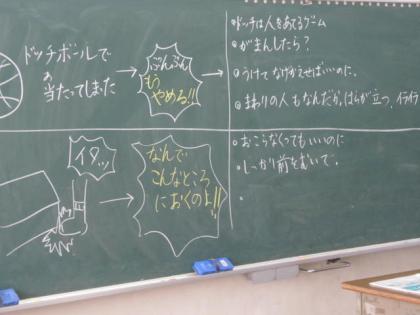 ドッチボールで
当たってしまった
ぷんぷん
もう
やめる!!
・ドッチは人をあてるゲーム
・がまんしたら?
・うけてなげかえせばいいのに。
・まわりの人もなんだか、はらが立つ。イライラ
イタッ
なんで
こんなところ
におくのよ!!
・おこらなくてもいいのに
・しっかり前をむいて。
・